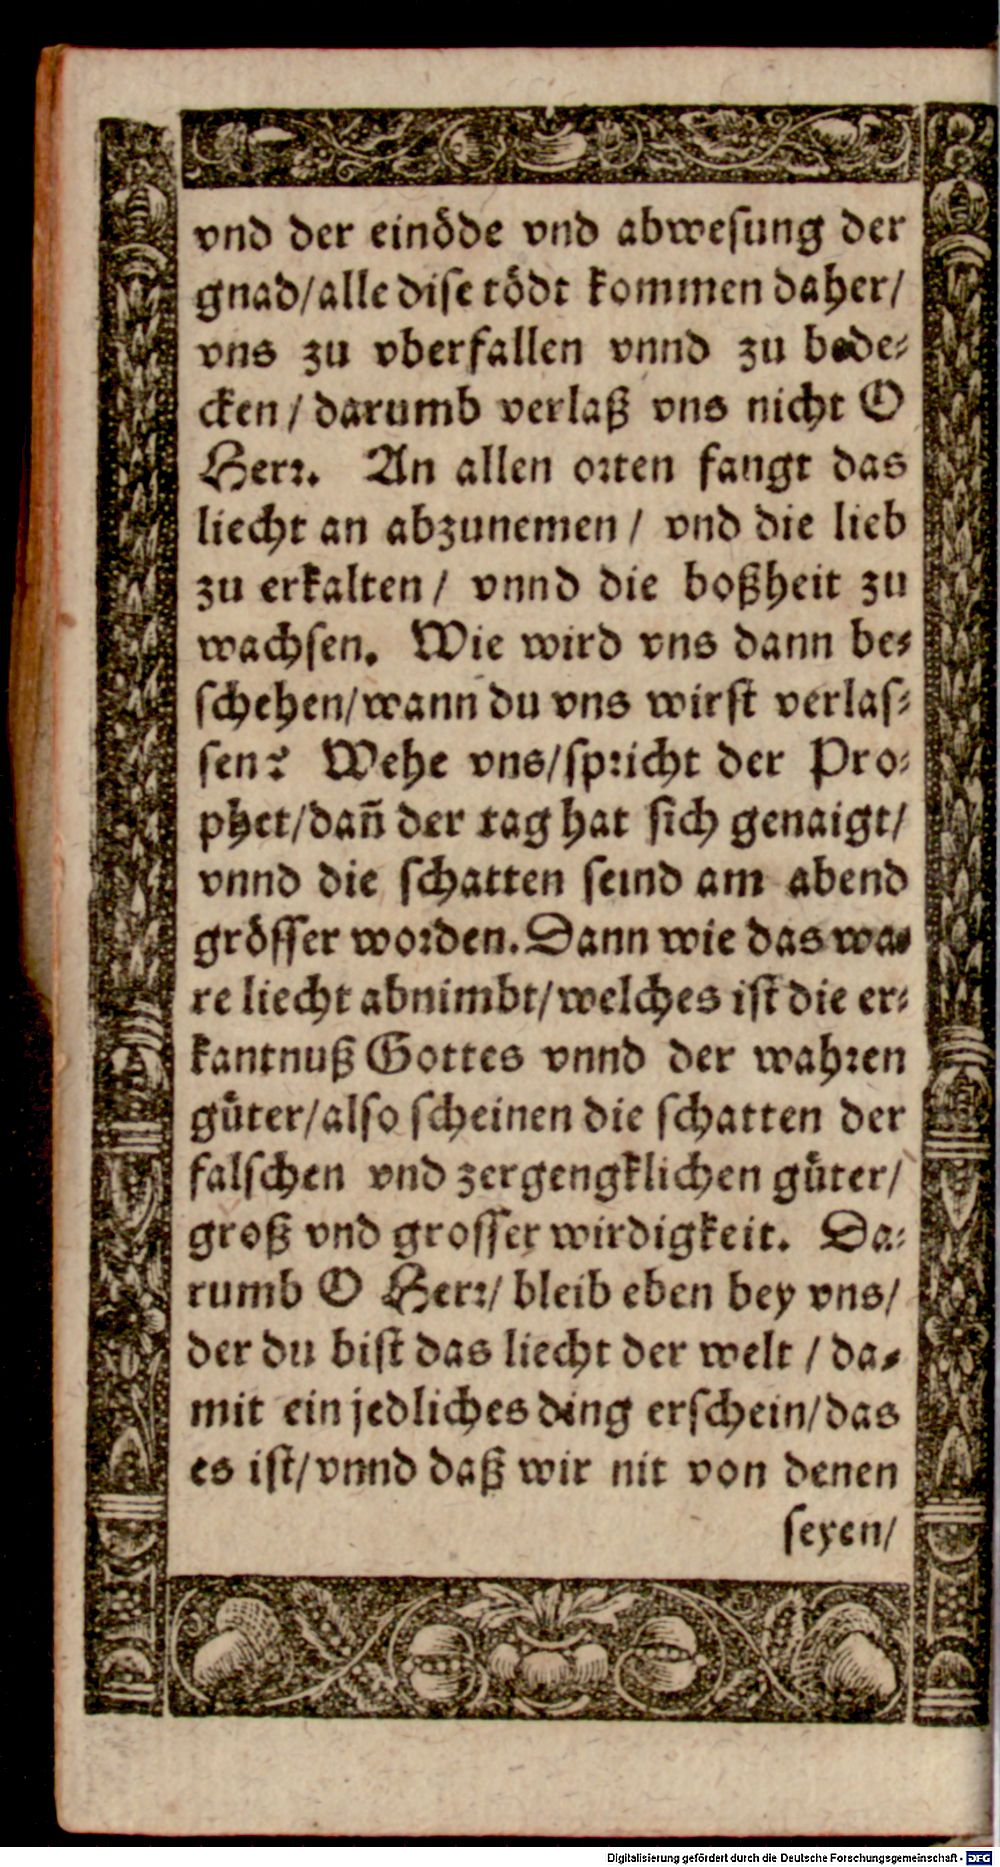 vnd der einöde vnd abwesung der
gnad/alle dise tödt kommen daher/
vns zu vberfallen vnnd zu bede-
cken / darumb verlaß vns nicht O
Herr. An allen orten fangt das
liecht an abzunemen / vnd die lieb
zu erkalten / vnnd die boßheit zu
wachsen. Wie wird vns dann be-
schehen/wann du vns wirst verlas-
sen? Wehe vns/spricht der Pro-
phet/dañ der tag hat sich genaigt/
vnnd die schatten seind am abend
grösser worden. Dann wie das wa-
re liecht abnimbt/welches ist die er-
kantnuß Gottes vnnd der wahren
güter/also scheinen die schatten der
falschen vnd zergengklichen güter/
groß vnd grosser wirdigkeit. Da-
rumb O Herr/ bleib eben bey vns/
der du bist das liecht der welt / da-
mit ein jedliches ding erschein/das
es ist/vnnd daß wir nit von denen
seyen/
Digitalisierung gefördert durch die Deutsche Forschungsgemeinschaft - DFG